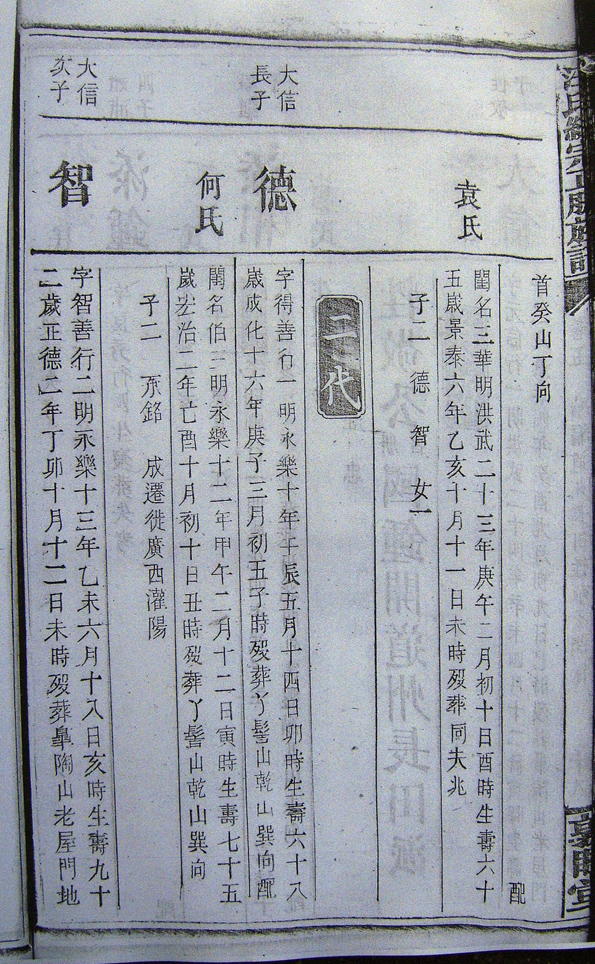 首癸山丁向
配
袁氏
閨名三華明洪武二十三年庚午二月初十日酉時生壽六十
五歲景泰六年乙亥十月十一日未時歿葬同夫兆
子二 德 智 女一
二代
大信
長子
德
字得善行一明永樂十年壬辰五月十四日卯時生壽六十八
歲成化十六年庚子三月初五子時歿葬丫髻山乾山巽向配
何氏
閨名伯三明永樂十二年甲午二月十二日寅時生壽七十五
歲宏治二年亡酉十月初十日丑時歿葬丫髻山乾山巽向
子二 东銘 成遷徙廣西灌陽
大信
次子
智
字智善行二明永樂十三年乙未六月十八日亥時生壽九十
二歲正德二年丁卯十月十二日未時歿葬皐陶山老屋門地